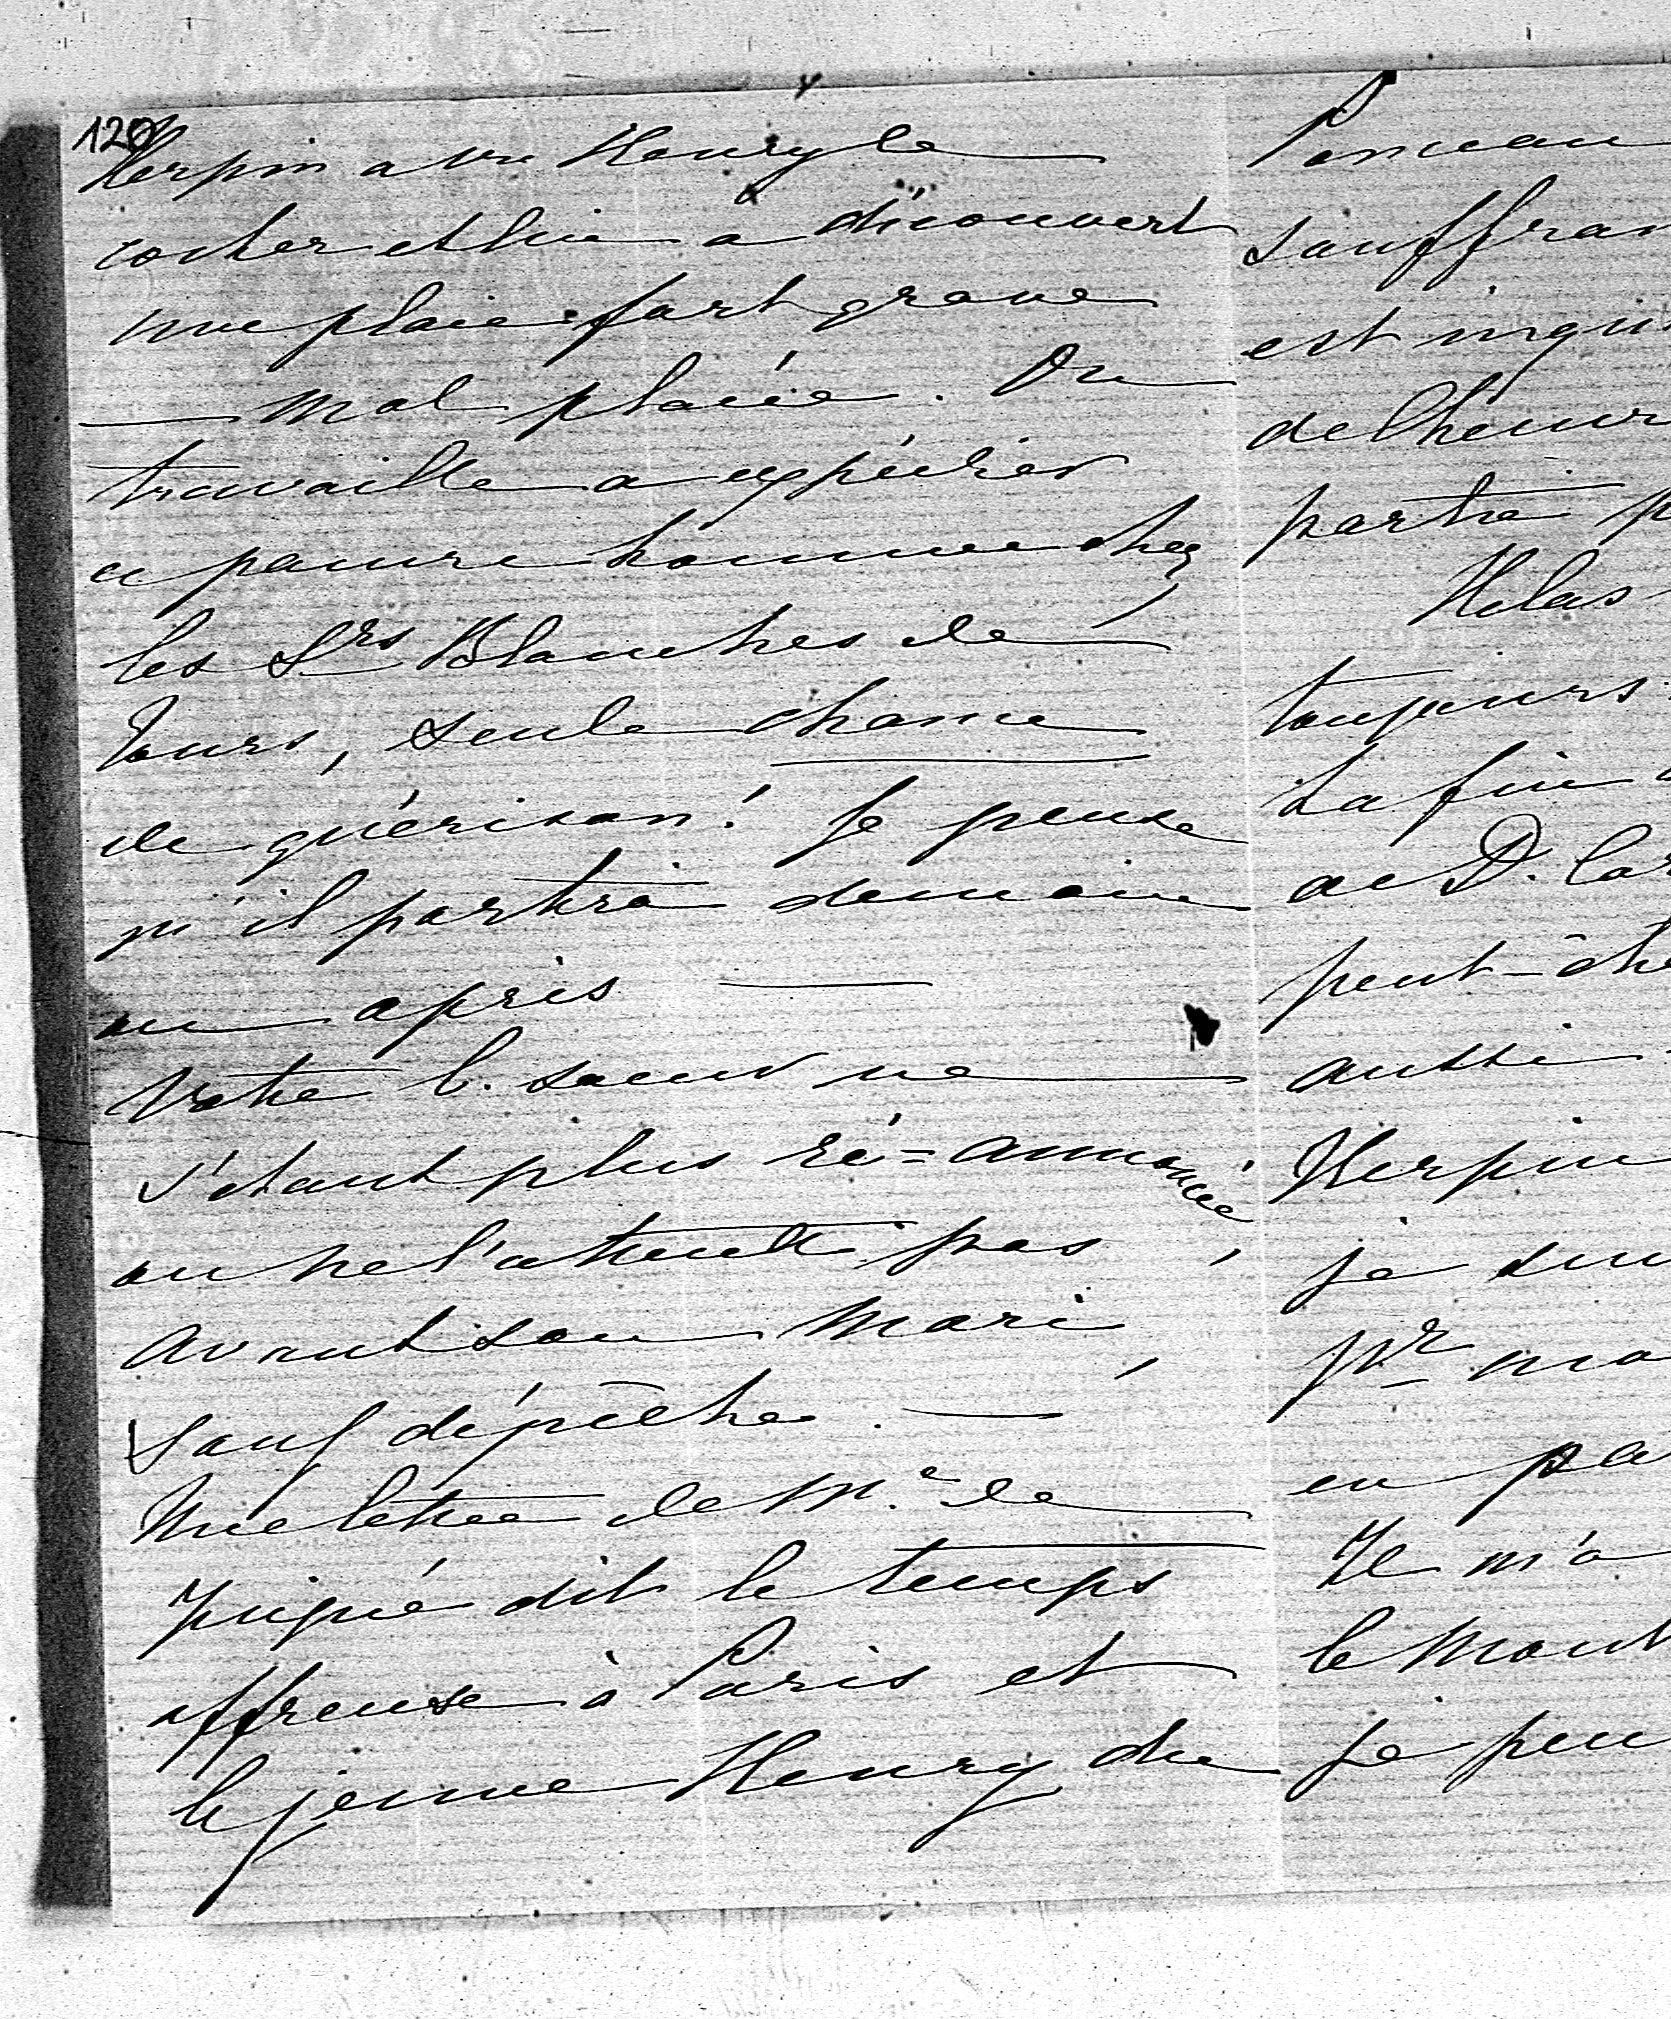 120
Herpin a vu Henry le
cocher et lui a découvert
une plaie fort grave
— mal placée. On
travaille a expédier
ce pauvre homme chez
les Srs Blanches de
Tours, seule chance
de guérison! Je pense
qu'il partira demain
ou après —
Votre b. sœur ne
s'étant plus ré=annoncée,
on ne l'attend pas
avant son mari,
sauf dépêche. —
Une lettre de Me de
Juigné dit le temps
affreux à Paris et
le jeune Henry du
Ponceau
souffran
est inqui
de l'heure
partie p
Helas
toujours
La fin
de D. Car
peut-être
aussi
Herpin
je sui
pr ma
en pa
Il m'a
le mont
je peu